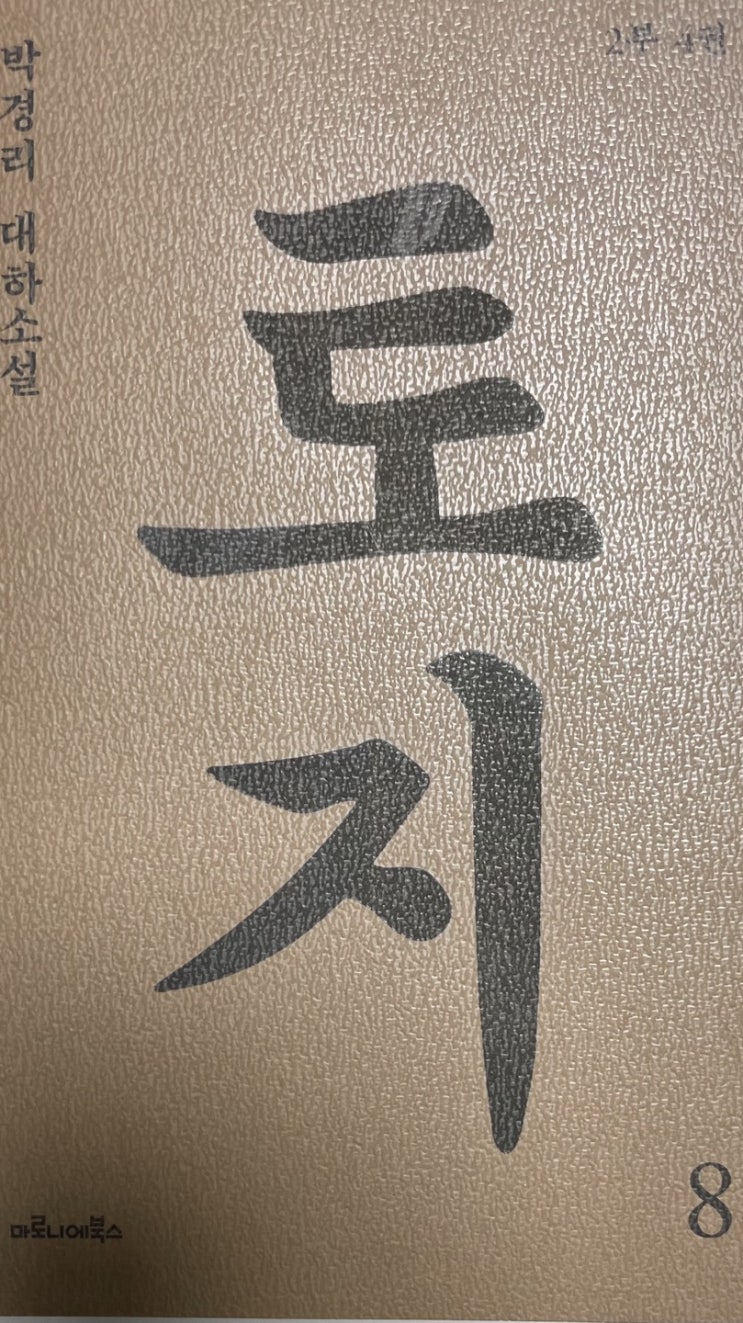 박경리 대하소설
2부 4권
토지
8
마로니에북스